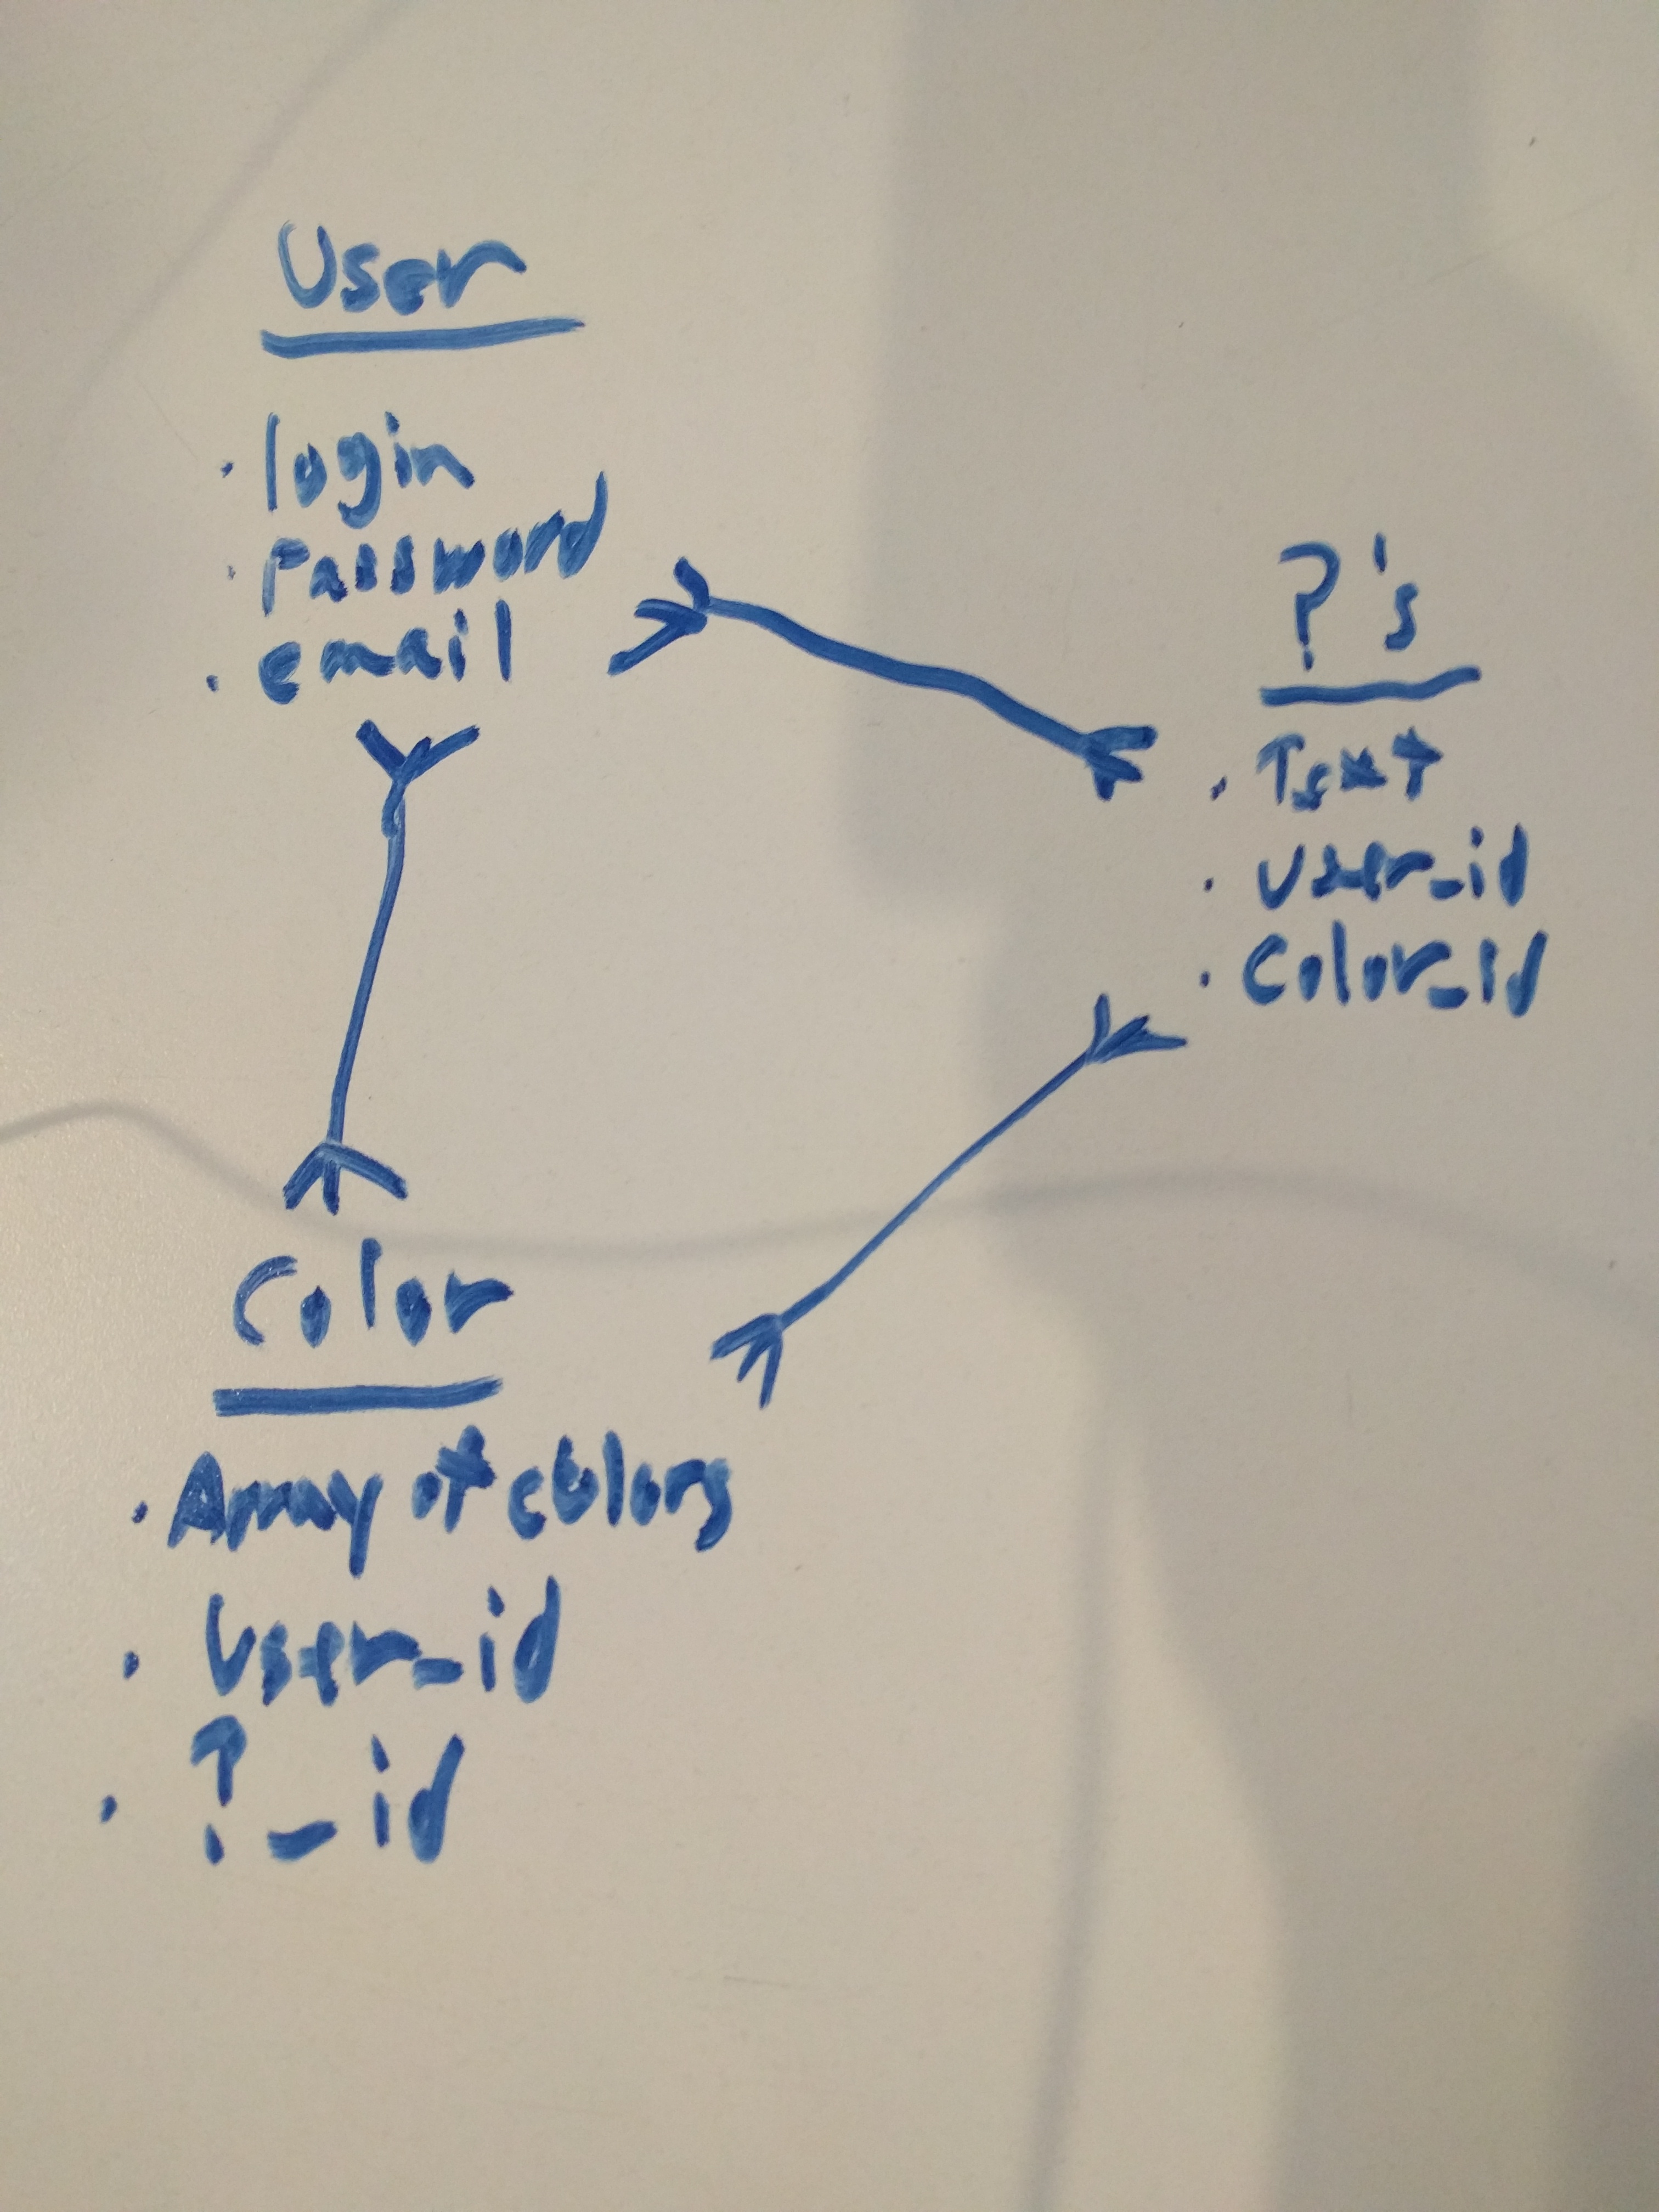 User
· login
· Password
· email
?'s
· Text
· User_id
· Color_id
Color
· Array of colors
· User_id
· ?_id